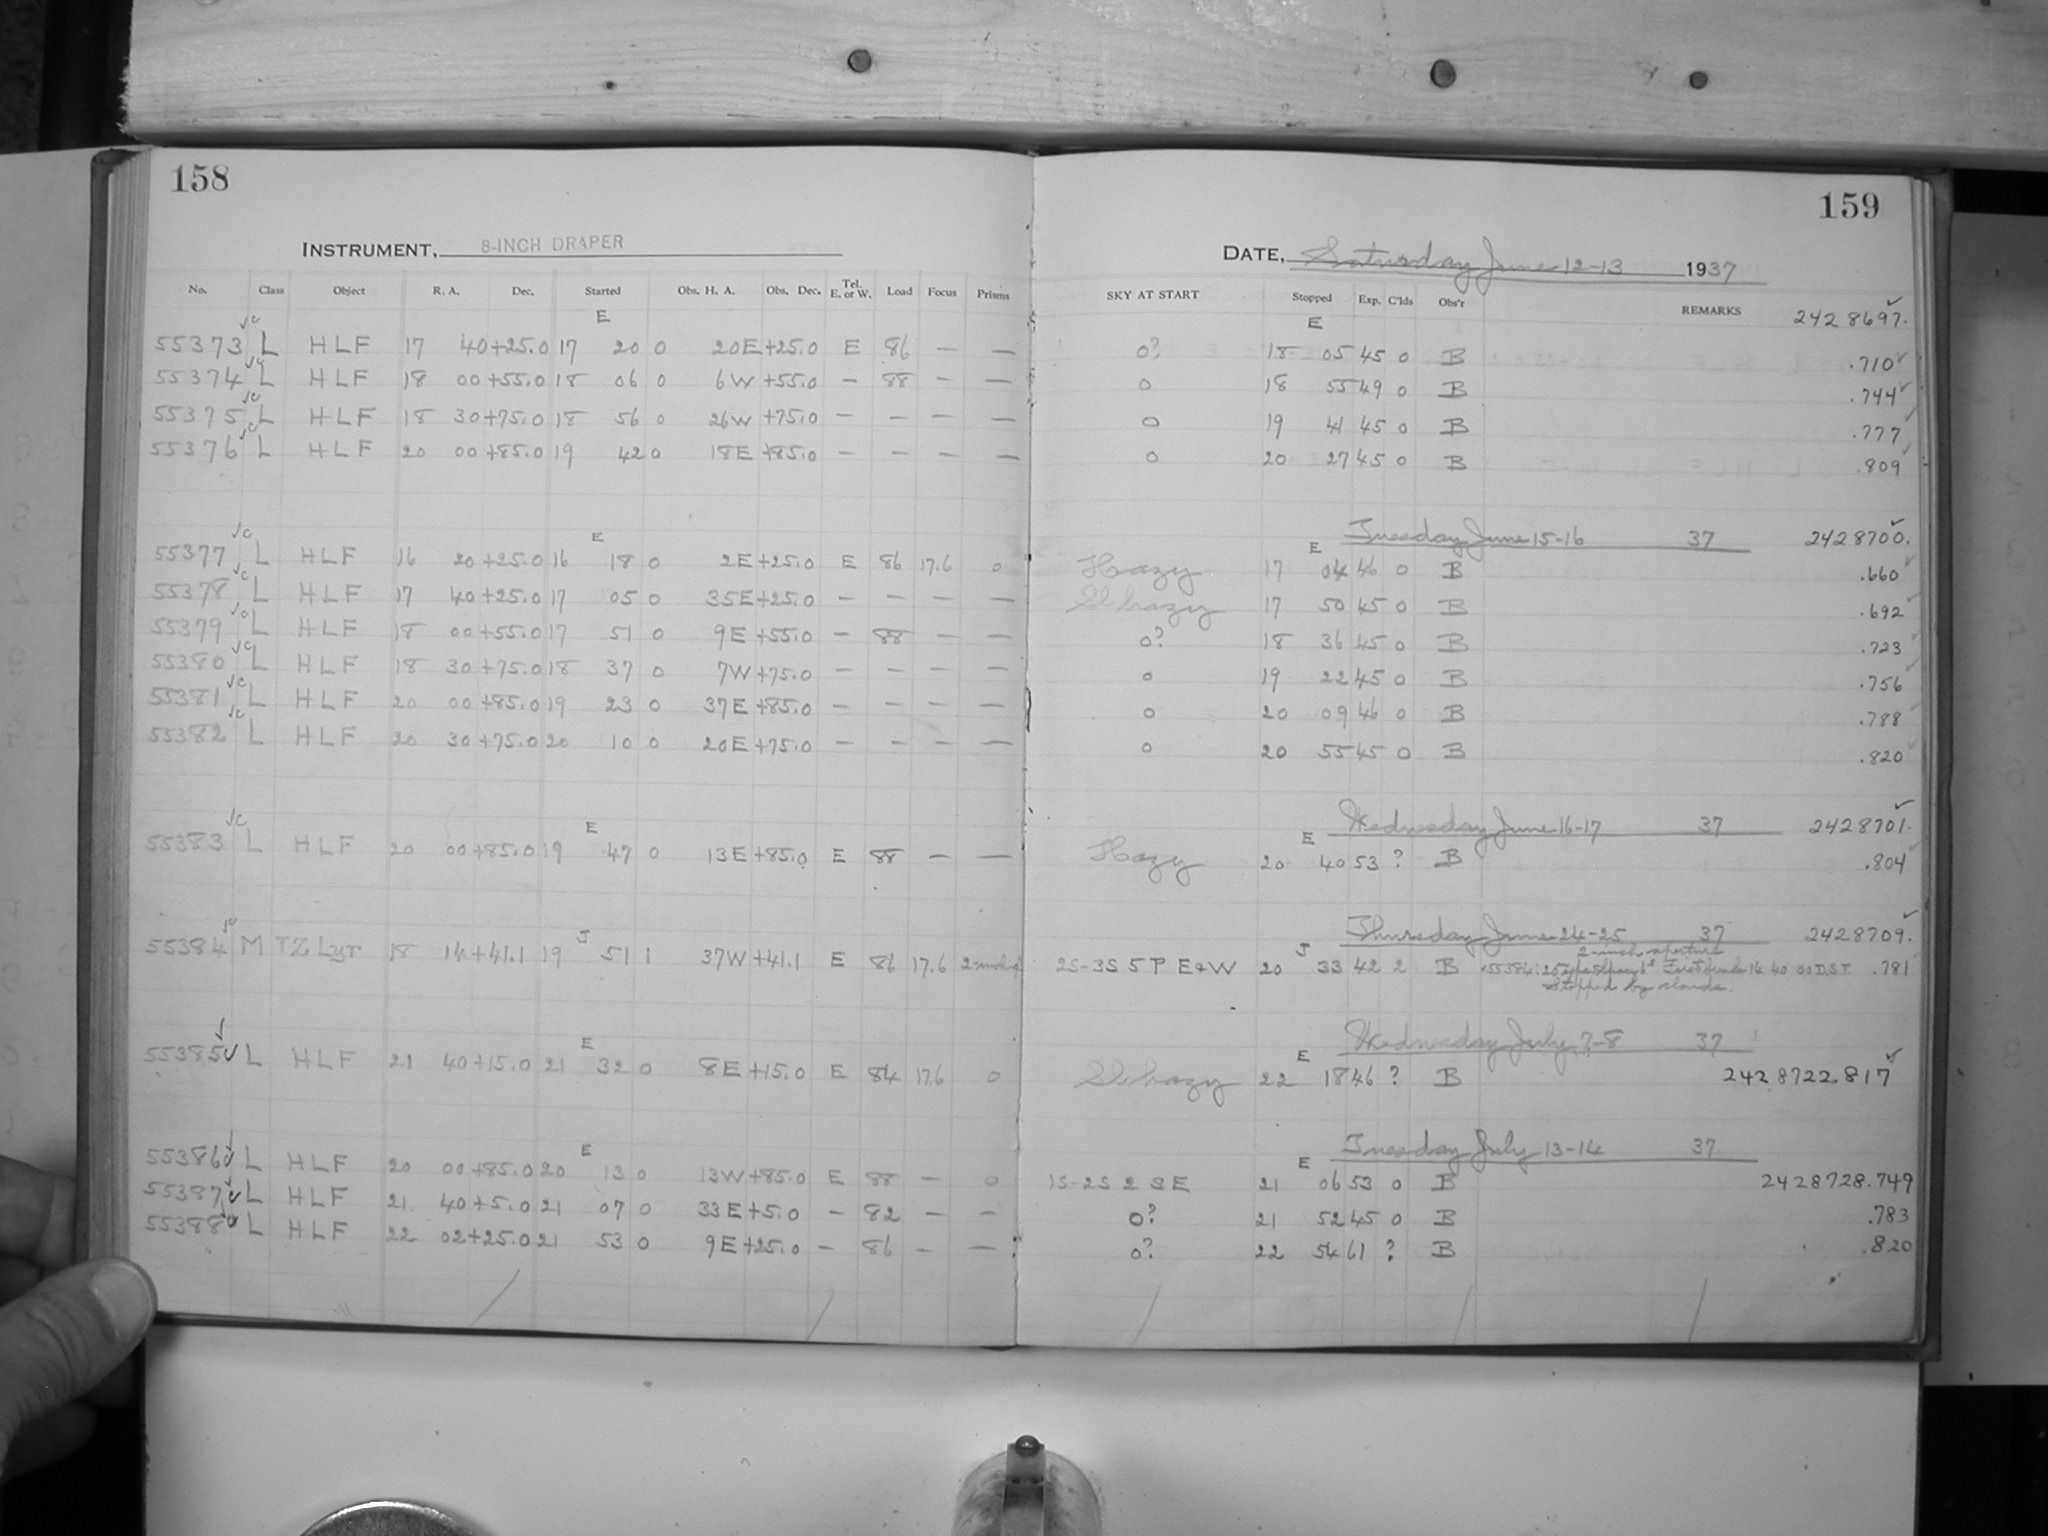 158
INSTRUMENT, 8-INCH DRAPER
No. Class Object R. A. Dec. Started Obs. H. A. Obs. Dec. Tel. E. or W. Load Focus Prisms
E
55373 L HLF 17 40 +25.0 17 20 0 20E +25.0 E 86 — —
55374 L HLF 18 00 +55.0 18 06 0 6W +55.0 – 88 – —
55375 L HLF 18 30 +75.0 18 56 0 26W +75.0 – – – —
55376 L HLF 20 00 +85.0 19 42 0 18E +85.0 – – – —
E
55377 L HLF 16 20 +25.0 16 18 0 2E +25.0 E 86 17.6 0
55378 L HLF 17 40 +25.0 17 05 0 35E +25.0 – – – —
55379 L HLF 18 00 +55.0 17 51 0 9E +55.0 – 88 – —
55380 L HLF 18 30 +75.0 18 37 0 7W +75.0 – – – —
55381 L HLF 20 00 +85.0 19 23 0 37E +85.0 – – – —
55382 L HLF 20 30 +75.0 20 10 0 20E +75.0 – – – —
E
55383 L HLF 20 00 +85.0 19 47 0 13E +85.0 E 88 – —
J
55384 M TZ Lyr 18 14 +41.1 19 51 1 37W +41.1 E 86 17.6
E
55385 L HLF 21 40 +15.0 21 32 0 8E +15.0 E 84 17.6 0
E
55386 L HLF 20 00 +85.0 20 13 0 13W +85.0 E 88 – 0
55387 L HLF 21 40 +5.0 21 07 0 33E +5.0 – 82 – –
55388 L HLF 22 02 +25.0 21 53 0 9E +25.0 – 86 – —
159
DATE, Saturday June 12-13 1937
SKY AT START Stopped Exp. C'lds Obs'r REMARKS
E 2428697.
0? 18 05 45 0 B .710
0 18 55 49 0 B .744
0 19 41 45 0 B .777
0 20 27 45 0 B .809
Tuesday June 15-16 37 2428700.
E
Hazy 17 04 46 0 B .660
Sl hazy 17 50 45 0 B .692
0? 18 36 45 0 B .723
0 19 22 45 0 B .756
0 20 09 46 0 B .788
0 20 55 45 0 B .820
Wednesday June 16-17 37 2428701.
E
Hazy 20 40 53 ? B .804
Thursday June 24-25 37 2428709.
2-inch aperture
J
2S-3S 5 P E&W 20 33 42 2 B 55384: 14 40 00 D.S.T. .781
Stopped by clouds.
Wednesday July 7-8 37
E
Sl hazy 22 18 46 ? B 2428722.817
Tuesday July 13-14 37
E
1S-2S 2 SE 21 06 53 0 B 2428728.749
0? 21 52 45 0 B .783
0? 22 54 61 ? B .820